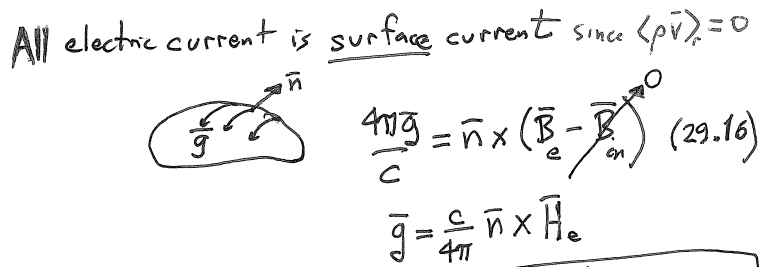 All electric current is surface current since ⟨ρv̄⟩ᵣ = 0
n̄
ḡ
4πḡ/c = n̄ × (B̄e − B̄in) 0 (29.16)
ḡ = c/4π n̄ × H̄e